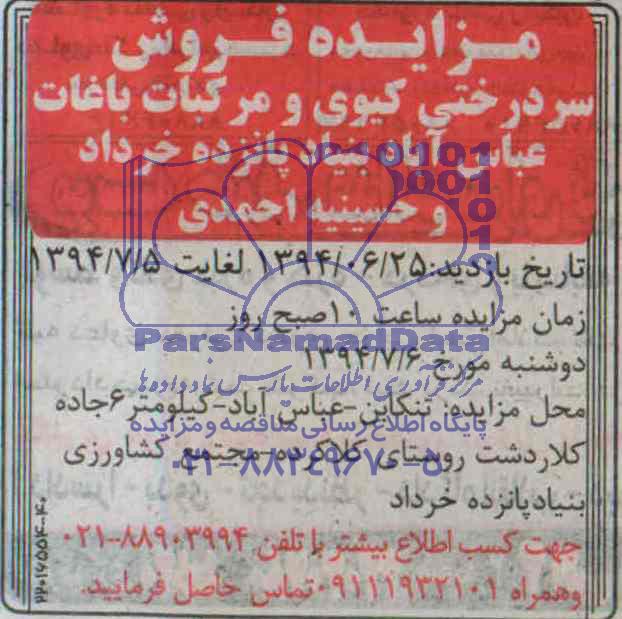 مزایده فروش
سردرختی کیوی و مرکبات باغات
عباس آباد بنیاد پانزده خرداد
و حسینیه احمدی
تاریخ بازدید:۱۳۹۴/۰۶/۲۵ لغایت ۱۳۹۴/۷/۵
زمان مزایده ساعت ۱۰صبح روز
دوشنبه مورخ ۱۳۹۴/۷/۶
محل مزایده: تنکابن-عباس آباد-کیلومتر۶جاده
کلاردشت روستای کلاکرده-مجتمع کشاورزی
بنیادپانزده خرداد
جهت کسب اطلاع بیشتر با تلفن ۸۸۹۰۳۹۹۴-۰۲۱
وهمراه ۰۹۱۱۱۹۳۲۱۰۱تماس حاصل فرمایید.
ParsNamadData
مرکز فرآوری اطلاعات پارس نماد داده ها
پایگاه اطلاع رسانی مناقصه و مزایده
۰۲۱-۸۸۳۴۹۶۷۰-۵